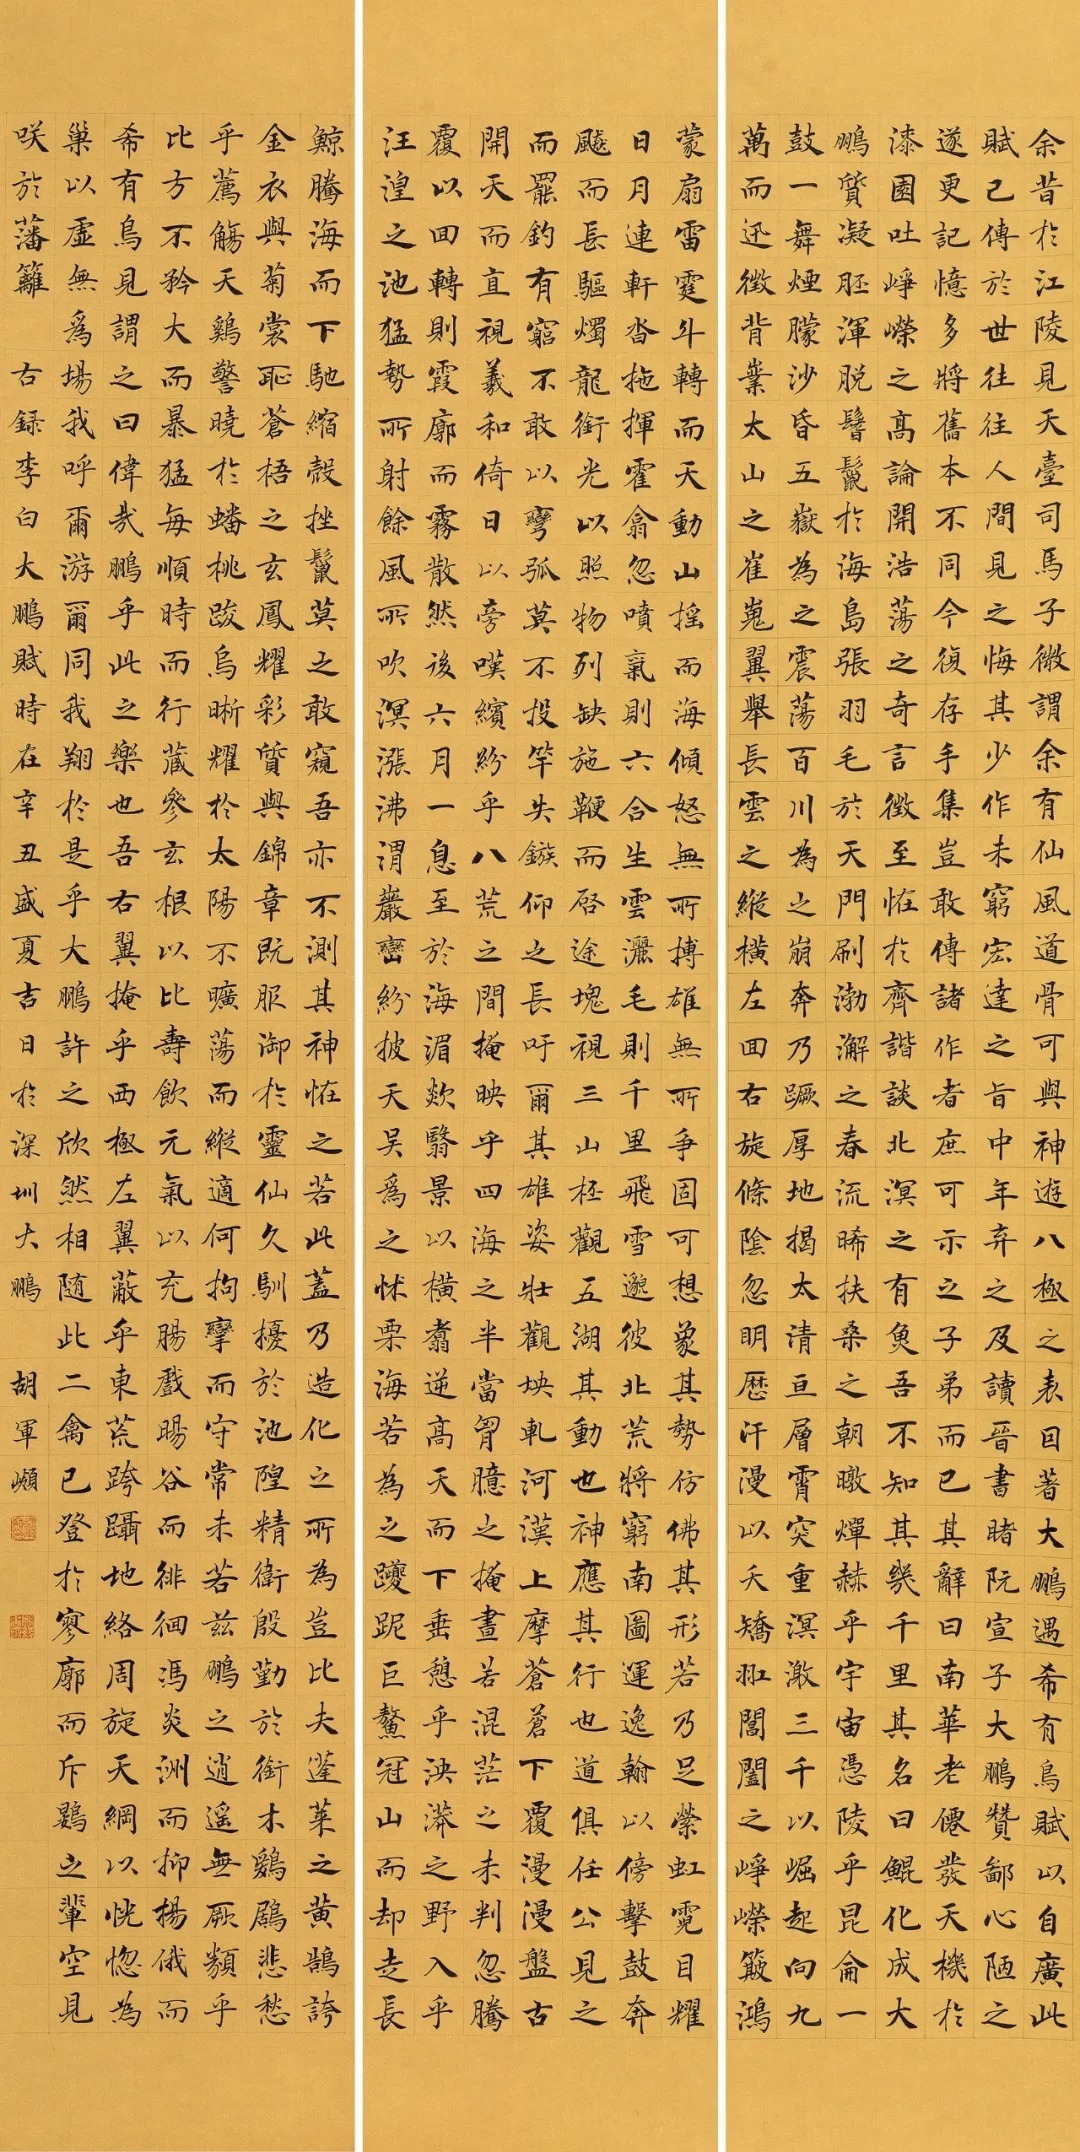 余昔於江陵見天臺司馬子微謂余有仙風道骨可與神遊八極之表因著大鵬遇希有鳥賦以自廣此
賦已傳於世往往人間見之悔其少作未窮宏達之旨中年弃之及讀晉書睹阮宣子大鵬贊鄙心陋之
遂更記憶多將舊本不同今復存手集豈敢傳諸作者庶可示之子弟而已其辭曰南華老僊發天機於
漆園吐崢嶸之高論開浩蕩之奇言徵至恠於齊諧談北溟之有魚吾不知其幾千里其名曰鯤化成大
鵬質凝胚渾脫鬐鬣於海島張羽毛於天門刷渤澥之春流晞扶桑之朝暾燀赫乎宇宙憑陵乎昆侖一
鼓一舞煙朦沙昏五嶽為之震蕩百川為之崩奔乃蹶厚地揭太清亘層霄突重溟激三千以崛起向九
萬而迅徵背嶪太山之崔嵬翼舉長雲之縱橫左回右旋倏陰忽明歷汗漫以夭矯羾閶闔之崢嶸簸鴻
蒙扇雷霆斗轉而天動山摇而海傾怒無所搏雄無所爭固可想象其勢仿佛其形若乃足縈虹霓目耀
日月連軒沓拖揮霍翕忽噴氣則六合生雲灑毛則千里飛雪邈彼北荒將窮南圖運逸翰以傍擊鼓奔
飈而長驅燭龍銜光以照物列缺施鞭而啓途塊視三山杯觀五湖其動也神應其行也道俱任公見之
而罷釣有窮不敢以彎弧莫不投竿失鏃仰之長吁爾其雄姿壯觀坱軋河漢上摩蒼蒼下覆漫漫盤古
開天而直視羲和倚日以旁嘆繽紛乎八荒之間掩映乎四海之半當胷臆之掩晝若混茫之未判忽騰
覆以回轉則霞廓而霧散然後六月一息至於海湄欻翳景以橫翥逆高天而下垂憩乎泱漭之野入乎
汪湟之池猛勢所射餘風所吹溟漲沸渭巖巒紛披天吴爲之怵栗海若為之躨跜巨鰲冠山而却走長
鯨騰海而下馳縮殼挫鬣莫之敢窺吾亦不測其神恠之若此蓋乃造化之所為豈比夫蓬萊之黄鵠誇
金衣與菊裳恥蒼梧之玄鳳耀彩質與錦章既服御於靈仙久馴擾於池隍精衛殷勤於銜木鷄鶋悲愁
乎薦觴天鷄警曉於蟠桃踆烏晰耀於太陽不曠蕩而縱適何拘攣而守常未若兹鵬之逍遥無厥類乎
比方不矜大而暴猛每順時而行藏參玄根以比壽飲元氣以充腸戲暘谷而徘徊馮炎洲而抑揚俄而
希有鳥見謂之曰偉哉鵬乎此之樂也吾右翼掩乎西極左翼蔽乎東荒跨躡地絡周旋天綱以恍惚為
巢以虛無爲場我呼爾游爾同我翔於是乎大鵬許之欣然相随此二禽已登於寥廓而斥鷃之輩空見
咲於藩籬 古録李白大鵬賦時在辛丑盛夏吉日於深圳大鵬 胡軍